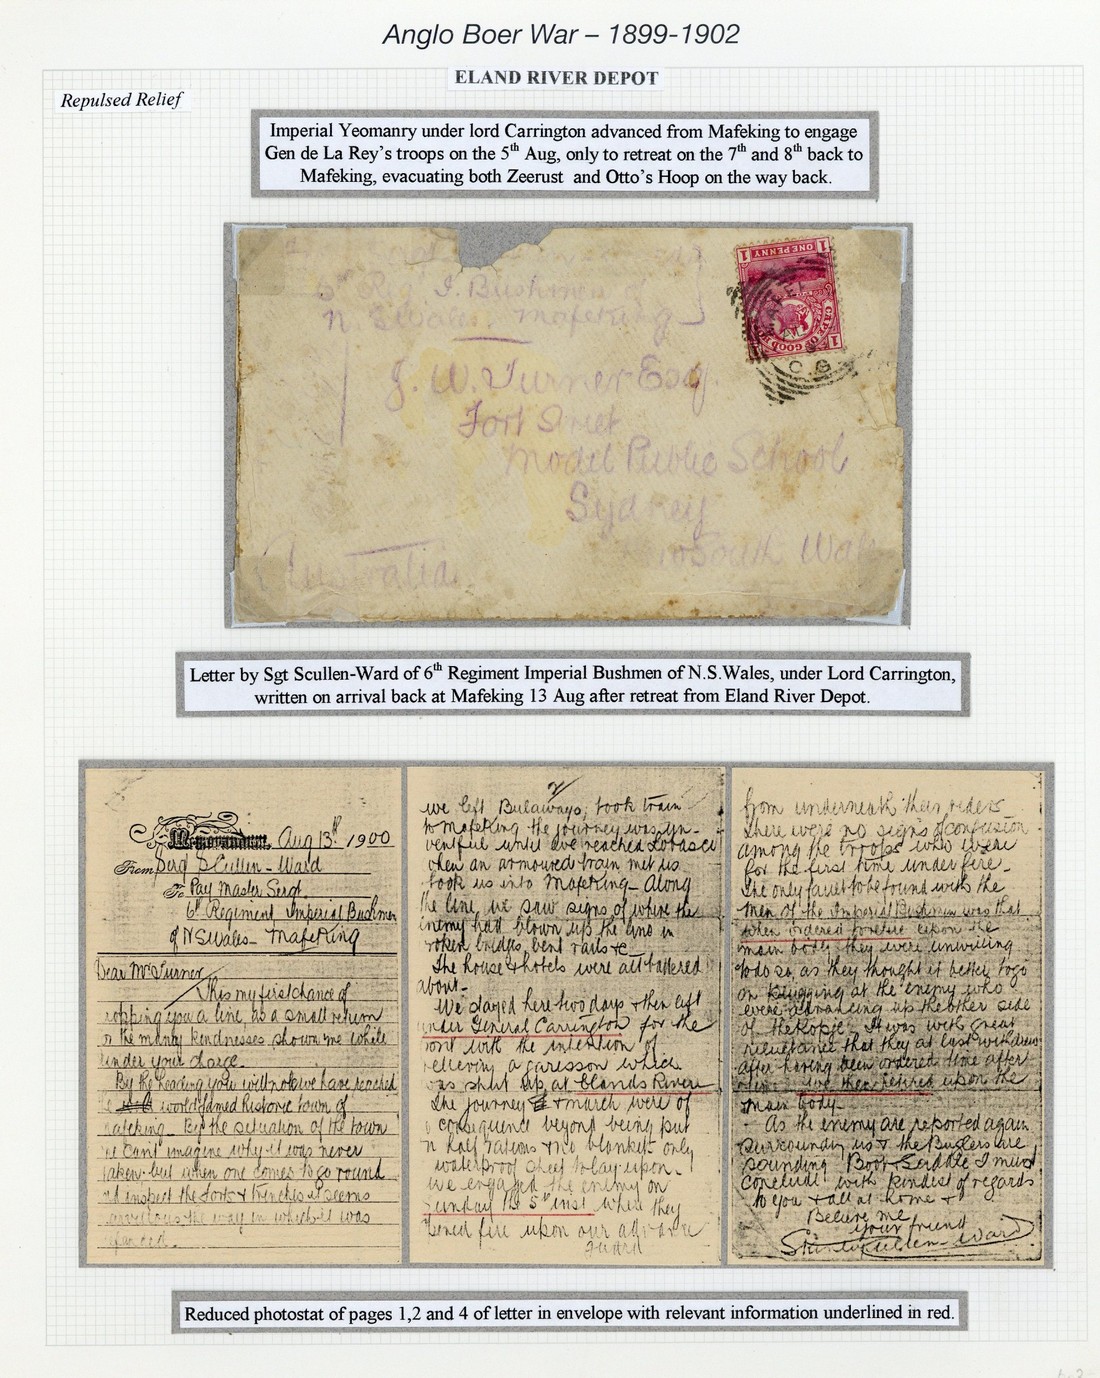 Anglo Boer War – 1899-1902
ELAND RIVER DEPOT
Repulsed Relief
Imperial Yeomanry under lord Carrington advanced from Mafeking to engage
Gen de La Rey's troops on the 5th Aug, only to retreat on the 7th and 8th back to
Mafeking, evacuating both Zeerust and Otto's Hoop on the way back.
6th Reg I. Bushmen of
N.S Wales Mafeking
ONE PENNY
CAPE OF GOOD
C.G.
J. W. Turner Esq.
Fort Street
Model Public School
Sydney
New South Wal
Australia
Letter by Sgt Scullen-Ward of 6th Regiment Imperial Bushmen of N.S.Wales, under Lord Carrington,
written on arrival back at Mafeking 13 Aug after retreat from Eland River Depot.
Memorandum Aug 13th 1900
From Sergt SCullen-Ward
To Pay Master Sergt.
6th Regiment Imperial Bushmen
of NSWales - Mafeking
Dear Mr Turner
This my first chance of
dropping you a line, as a small return
the many kindnesses shown me while
under your charge.
By the heading you will note we have reached
world famed historic town of
Mafeking. By the situation of the town
can't imagine why it was never
taken but when one comes to go round
inspect the forts & trenches it seems
the way in which it was
2
we left Bulawayo, took train
to Mafeking the journey was un-
ventful until we reached Lobatsi
when an armoured train met us
took us into Mafeking - Along
the line, we saw signs of where the
enemy had blown up the line in
broken bridges, bent rails &c
The houses & hotels were all battered
about -
We stayed here two days & then left
under General Carrington for the
with the intention of
relieving a garesson which
was shut up at Elands River
The journey & march were of
consequence beyond being put
on half rations & no blankets only
waterproof sheet to lay upon -
we engaged the enemy on
Sunday the 5th inst where they
opened fire upon our advance
guard
from underneath their riders
There were no signs of confusion
among the troops who were
for the first time under fire.
The only fault to be found with the
men of the Imperial Bushmen was that
when ordered to retire upon the
main body they were unwilling
to do so, as they thought it better to go
on plugging at the enemy who
were advancing up the other side
of the Kopje. It was with great
reluctance that they at last withdrew
after having been ordered time after
time. We then retired upon the
main body -
As the enemy are reported again
surrounding us & the Buglers are
sounding Boot & Saddle I must
conclude with kindest of regards
to you & all at home &
Believe me
Your friend
Cullen-Ward
Reduced photostat of pages 1,2 and 4 of letter in envelope with relevant information underlined in red.